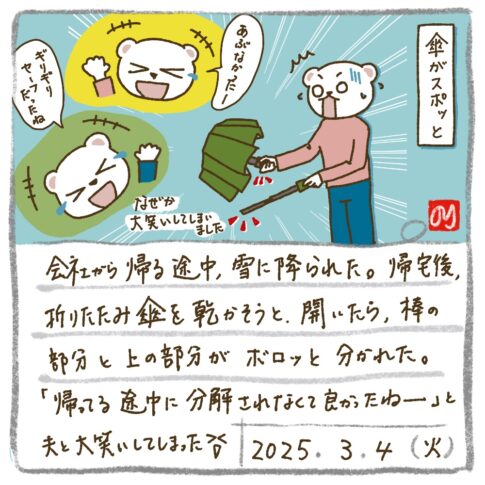 傘がスポッと
あぶなかったー!
ギリギリ
セーフ
だったね
なぜか
大笑いしてしまい
ました
会社から帰る途中、雪に降られた。帰宅後、
折りたたみ傘を乾かそうと、開いたら、棒の
部分と上の部分がボロッと分かれた。
「帰ってる途中に分解されなくて良かったねー」と
夫と大笑いしてしまった
2025.3.4(火)